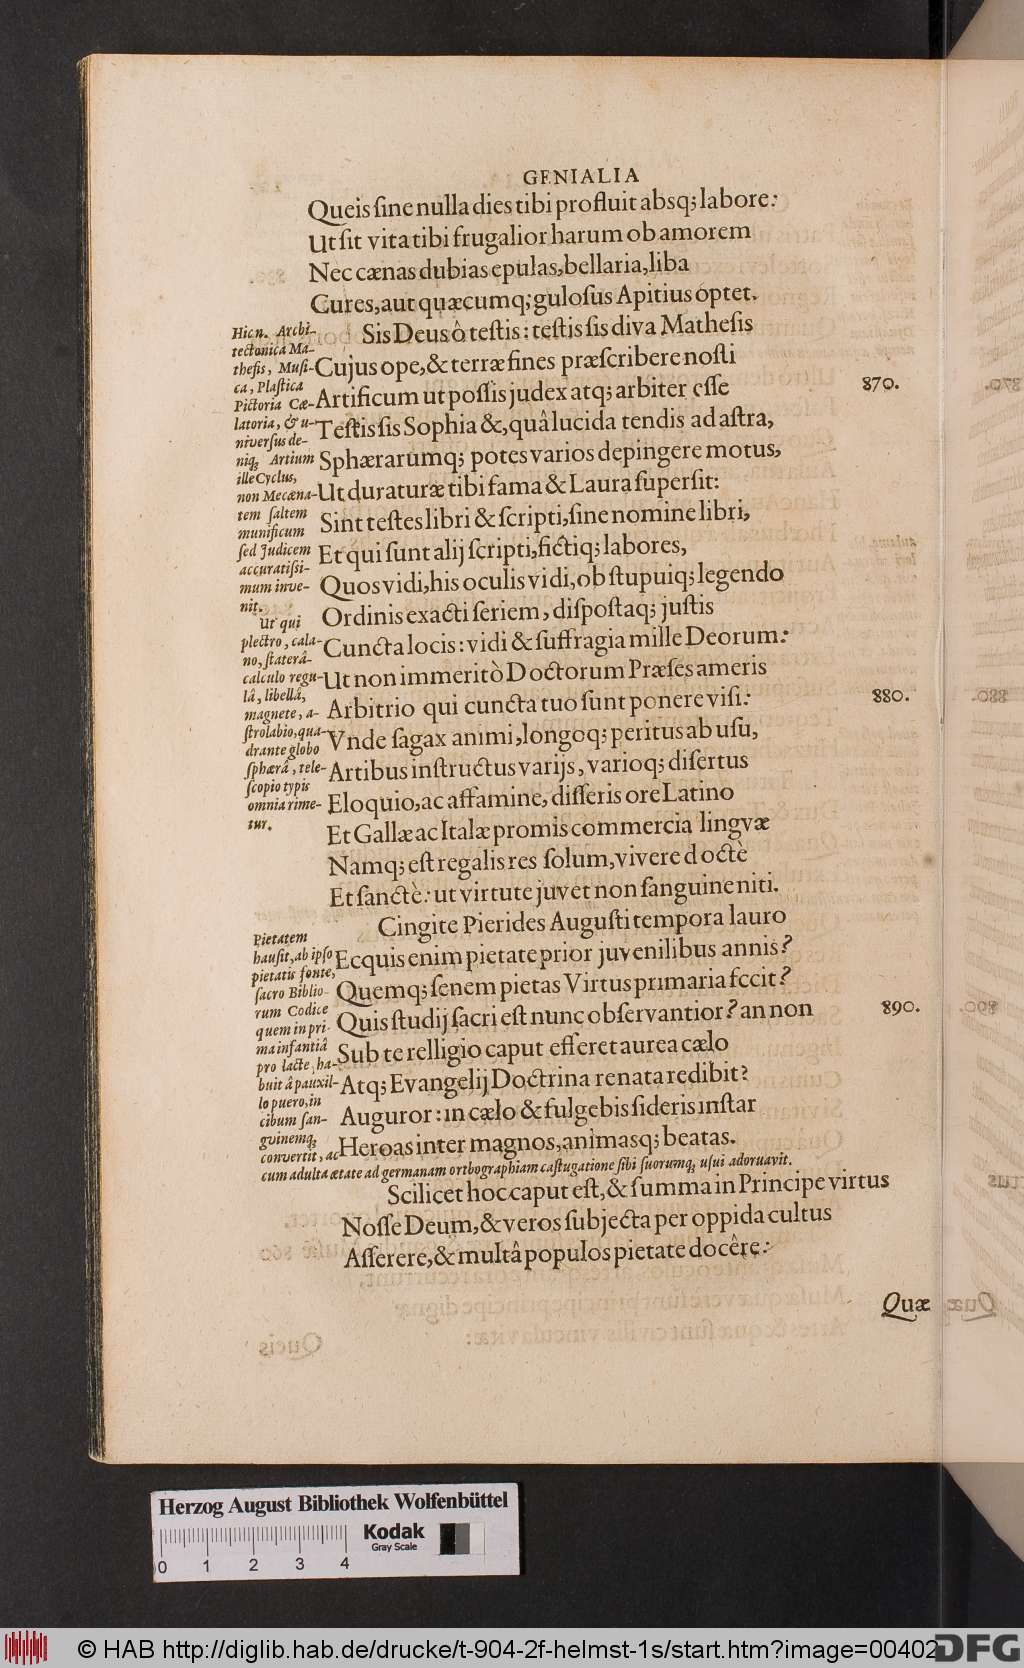 GENIALIA
Queis ſine nulla dies tibi profluit absq; labore:
Ut ſit vita tibi frugalior harum ob amorem
Nec cænas dubias epulas, bellaria, liba
Cures, aut quæcumq; guloſus Apitius optet.
Sis Deus ô teſtis: teſtis ſis diva Matheſis
Cujus ope, & terræ fines præſcribere noſti
Artificum ut poſſis judex atq; arbiter eſſe
870.
Teſtis ſis Sophia &, quâ lucida tendis ad aſtra,
Sphærarumq; potes varios depingere motus,
Ut duraturæ tibi fama & Laura ſuperſit:
Sint teſtes libri & ſcripti, ſine nomine libri,
Et qui ſunt alij ſcripti, fictiq; labores,
Quos vidi, his oculis vidi, obſtupuiq; legendo
Ordinis exacti ſeriem, diſpoſtaq; juſtis
Cuncta locis: vidi & ſuffragia mille Deorum:
Ut non immeritò Doctorum Præſes ameris
Arbitrio qui cuncta tuo ſunt ponere viſi:
880.
Vnde ſagax animi, longoq; peritus ab uſu,
Artibus inſtructus varijs, varioq; diſertus
Eloquio, ac affamine, diſſeris ore Latino
Et Gallæ ac Italæ promis commercia lingvæ
Namq; eſt regalis res ſolum, vivere doctè
Et ſanctè: ut virtute juvet non ſanguine niti.
Cingite Pierides Auguſti tempora lauro
Ecquis enim pietate prior juvenilibus annis?
Quemq; ſenem pietas Virtus primaria fecit?
Quis ſtudij ſacri eſt nunc obſervantior? an non
890.
Sub te relligio caput efferet aurea cælo
Atq; Evangelij Doctrina renata redibit?
Auguror: in cælo & fulgebis ſideris inſtar
Heroas inter magnos, animasq; beatas.
Scilicet hoc caput eſt, & ſumma in Principe virtus
Noſſe Deum, & veros ſubjecta per oppida cultus
Aſſerere, & multâ populos pietate docêre:
Quæ
Hic n. Archi-
tectonica Ma-
theſis, Muſi-
ca, Plaſtica
Pictoria Cæ-
latoria, & u-
niverſus de-
niq; Artium
ille Cyclus,
non Mecæna-
tem ſaltem
munificum
ſed Judicem
accuratiſſi-
mum inve-
nit.
Ut qui
plectro, cala-
no, ſtaterâ-
calculo regu-
lâ, libellâ,
magnete, a-
ſtrolabio, qua-
drante globo
ſphærâ, tele-
ſcopio typis
omnia rime-
tur.
Pietatem
hauſit, ab ipſo
pietatis fonte,
ſacro Biblio-
rum Codice
quem in pri-
ma infantiâ
pro lacte, ha-
buit â pauxil-
lo puero, in
cibum ſan-
guinemq;
convertit, ac
cum adulta ætate ad germanam orthographiam caſtugatione ſibi ſuorumq; uſui adoruavit.
Queis
Herzog August Bibliothek Wolfenbüttel
Kodak
Gray Scale
0 1 2 3 4
© HAB http://diglib.hab.de/drucke/t-904-2f-helmst-1s/start.htm?image=00402
DFG